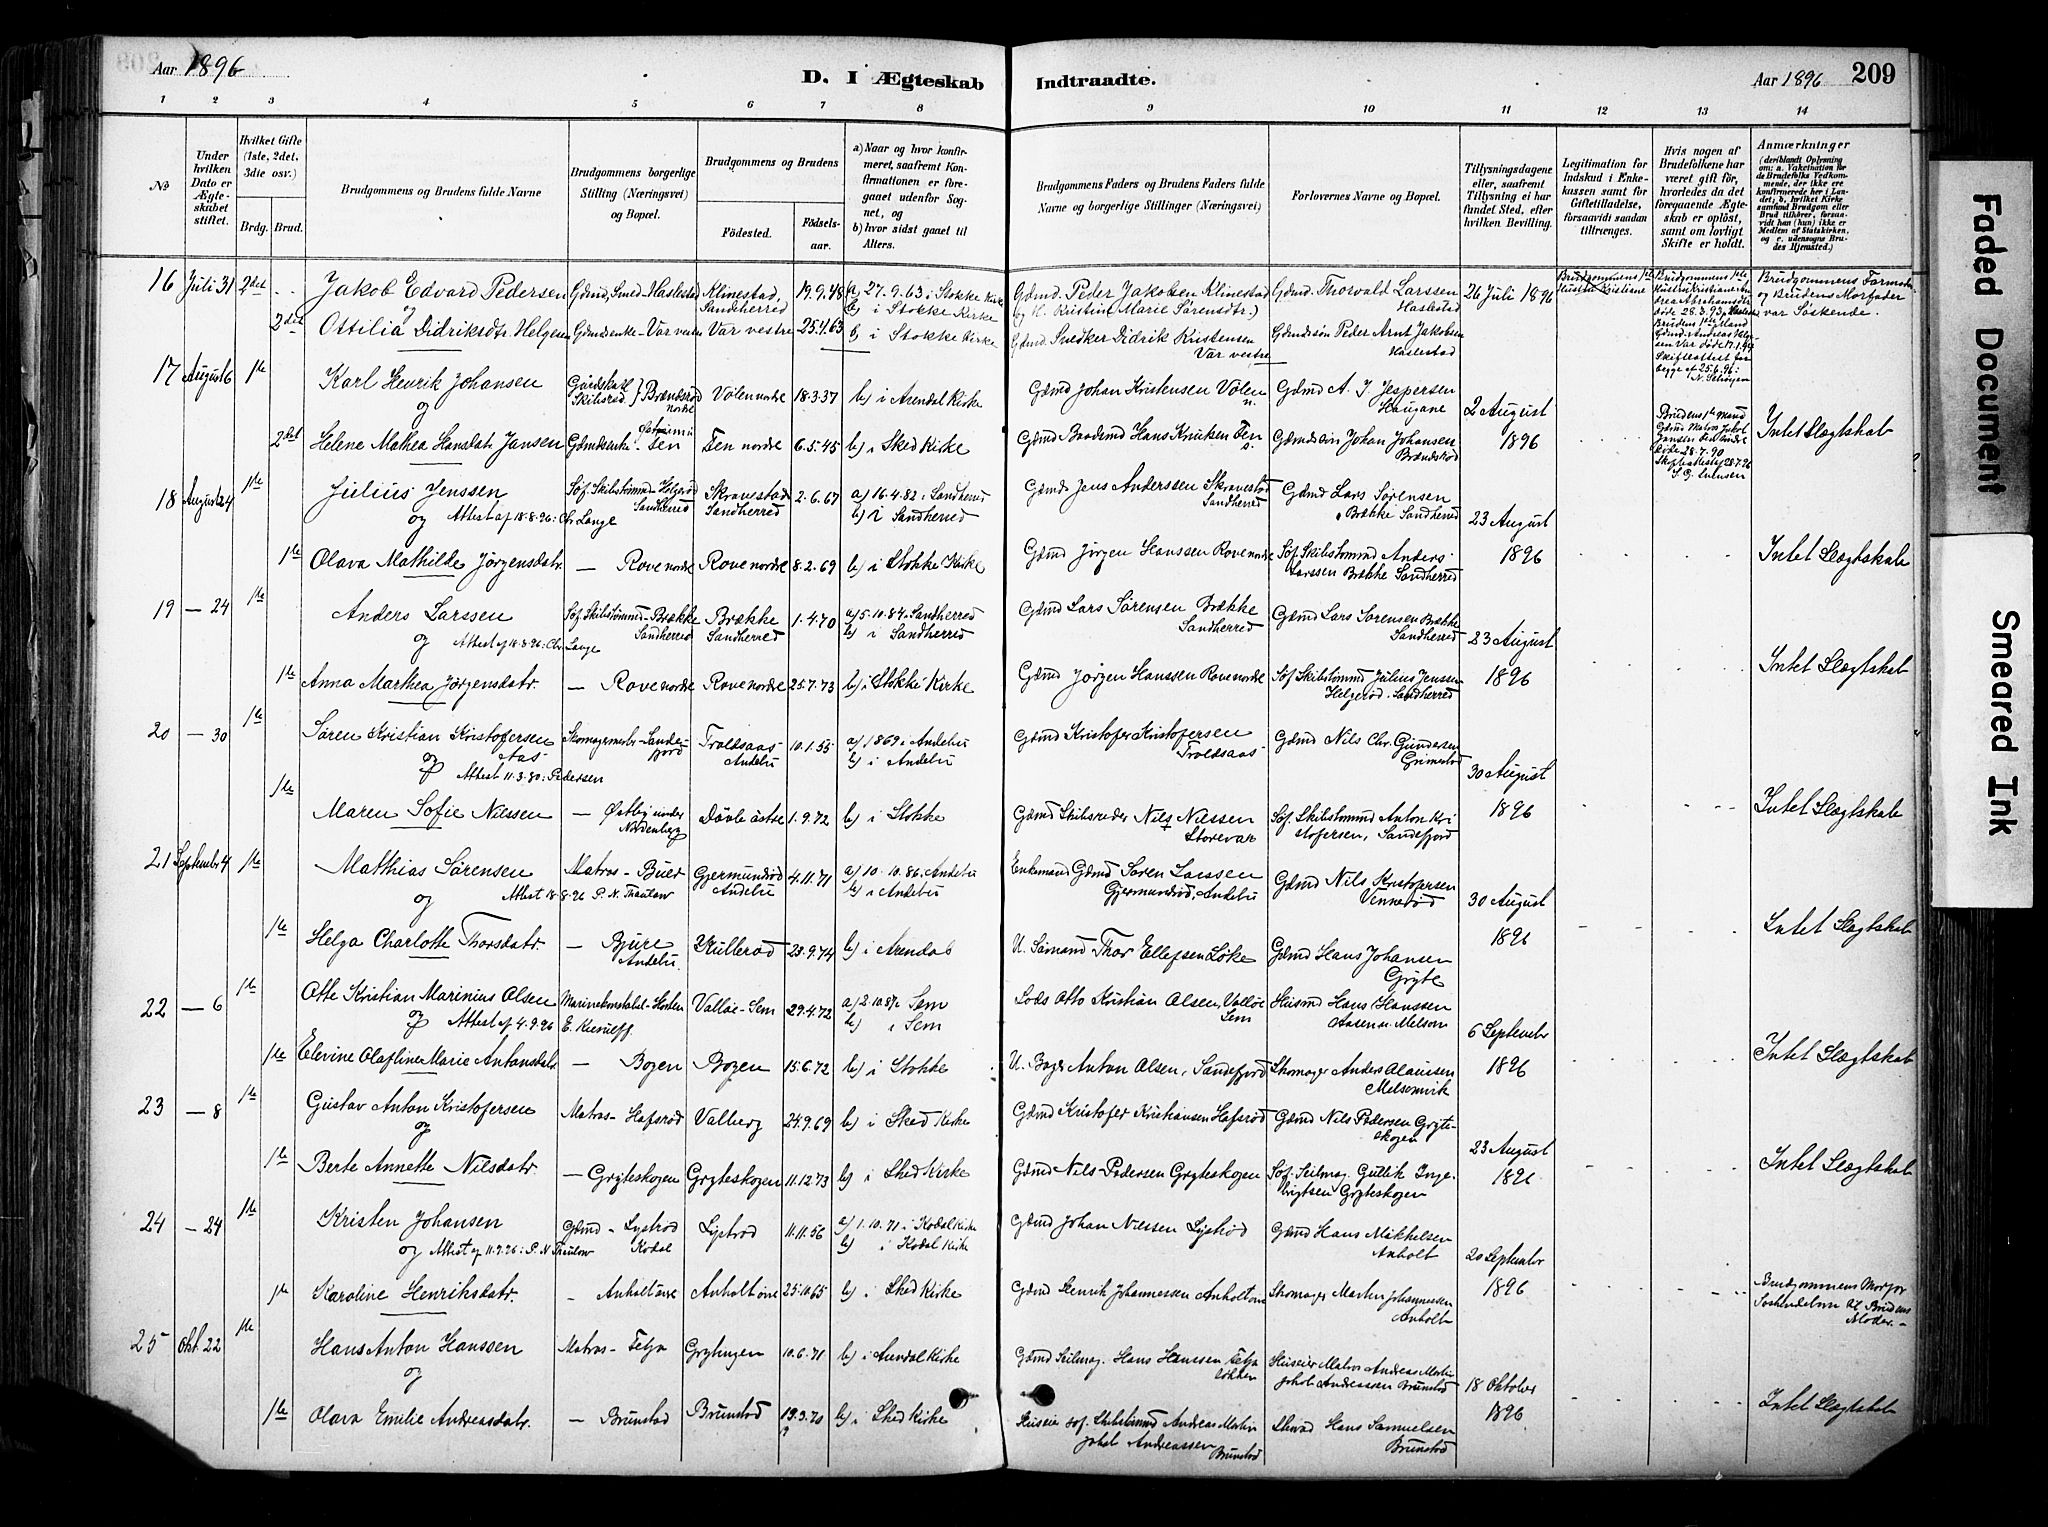 Aar 1896
D. I Ægteskab Indtraadte.
Aar 1896 209
1 2 3 4 5 6 7 8 9 10 11 12 13 14
No
Under hvilken Dato er Ægteskabet stiftet.
Hvilket Gifte (1ste, 2det, 3die osv.)
Brdg. Brud.
Brudgommens og Brudens fulde Navne
Brudgommens borgerlige Stilling (Næringsvei) og Bopæl.
Brudgommens og Brudens
Fødested. Fødselsaar.
a) Naar og hvor konfirmeret, saafremt Konfirmationen er foregaaet udenfor Sognet, og
b) hvor sidst gaaet til Alters.
Brudgommens Faders og Brudens Faders fulde Navne og borgerlige Stillinger (Næringsvei)
Forlovernes Navne og Bopæl.
Tillysningsdagene eller, saafremt Tillysning ei har fundet Sted, efter hvilken Bevilling.
Legitimation for Indskud i Enkekassen samt for Giftetilladelse, forsaavidt saadan tiltrænges.
Hvis nogen af Brudefolkene har været gift før, hvorledes da det foregaaende Ægteskab er opløst, samt om lovligt Skifte er holdt.
Anmærkninger
(deriblandt Oplysning om: a. Vakcination for de Brudefolks Vedkommende, der ikke ere konfirmerede her i Landet; b. hvilket Kirkesamfund Brudgom eller Brud tilhører, forsaavidt han (hun) ikke er Medlem af Statskirken, og c. udensogns Brudes Hjemsted.)
16 Juli 31 2det Jakob Edvard Pedersen Gdmd, Smed Haslestad Klinestad, Sandherred 19.9.48 a) 27.9.63 i Stokke Kirke b) i Stokke Kirke Gdmd. Peder Jakobsen Klinestad og H. Kristine Marie Sørensdtr.) Gdmd. Thorvald Larssen Haslestad 26 Juli 1896 Brudgommens Farmoder og Brudens Morfader var Søskende.
og
2det Ottilia Didriksdtr Helgesen Gdmdenke - Var vestre Var vestre 25.4.63 b) i Stokke Kirke Gdmd. Snedker Didrik Kristensen Var vestre Gdmdssøn Peder Arnt Jakobsen Haslestad
17 August 6 1ste Karl Henrik Johansen Gårdskarl Skibsred. Brændsrød nordre Volen nordre 18.3.37 b) i Arendal Kirke Gdmd Johan Kristensen Volen n. Gdmd. A. J. Jespersen Haugane 2 August
og
2det Helene Mathea Hansdatr. Jansen Gdmdsenke - Fen Fen nordre 6.5.45 b) i Sked Kirke Gdmd Brudemd Hans Knutsen Fen Gdmdssøn Johan Johansen Brændsrød 1896 Intet Slægtskab
18 August 24 1ste Julius Jenssen Søf. Skibstømmd - Helgerød Sandherred Skravestad Sandherred 2.6.67 a) 16.4.82 i Sandherred b) i Sandherred Gdmd. Jens Anderssen Skravestad Sandherred Gdmd Lars Sørensen Brække Sandherred 23 August
og Attest af 18.8.96: Chr. Lange
1ste Olava Mathilde Jørgensdatr. - Rove nordre Rove nordre 8.2.69 b) i Stokke Kirke Gdmd Jørgen Hanssen Rove nordre Søf. Skibstømmd Anders Larssen Brække Sandherred 1896 Intet Slægtskab
19 - 24 1ste Anders Larssen Søf. Skibstømmd - Brække Sandherred Brække Sandherred 1.4.70 a) 5.10.84 i Sandherred b) i Sandherred Gdmd Lars Sørensen Brække Sandherred Gdmd Lars Sørensen Brække Sandherred 23 August
og Attest af 18.8.96: Chr. Lange
1ste Anna Marthea Jørgensdatr. - Rove nordre Rove nordre 25.7.73 b) i Stokke Kirke Gdmd Jørgen Hanssen Rove nordre Søf. Skibstømmd Julius Jenssen Helgerød. Sandherred 1896 Intet Slægtskab
20 - 30 1ste Søren Kristian Kristofersen Aas Skomagermester - Sandefjord Troldsaas Andebu 10.1.55 a) 1869 i Andebu b) i Andebu Gdmd Kristofer Kristofersen Troldsaas Gdmd Nils Chr. Gundersen Grimestad 30 August
og Attest 11.3.80: Pedersen
1ste Maren Sofie Nilssen - Østby under Nordenberg Døvle østre 1.9.72 b) i Stokke Gdmd Skibsreder Nils Nilssen Storevar Søf. Skibstømmd Anton Kristofersen, Sandefjord 1896 Intet Slægtskab
21 September 4 1ste Matthias Sørensen Matros - Buer Gjermundrød Andebu 4.11.71 a) 10.10.86 Andebu b) i Andebu Enkemand Gdmd Søren Larssen Gjermundrød, Andebu Gdmd Nils Kristofersen Vennerød 30 August
og Attest 18.8.96 P. N. Thaulow
1ste Helga Charlotte Thorsdatr. - Bjure Andebu. Skullerød 23.9.74 b) i Arendal U. Sømand Thor Ellefsen Løke Gdmd Hans Johansen Gryte 1896 Intet Slægtskab
22 - 6 1ste Otto Kristian Marinius Olsen Marinekonstabel - Horten Valløe - Sem 29.4.72 a) 2.10.87 i Sem b) i Sem Lods Otto Kristian Olsen, Valløe Sem Husmd Hans Hanssen Aasen u. Melsom 6 September
og Attest af 4.9.96 E. Kierulff
1ste Elevine Olafline Marie Antonsdatr. - Bogen Bogen 15.6.72 b) i Stokke U. Bager Anton Olsen, Sandefjord Skomager Anders Olaussen Melsomvik 1896 Intet Slægtskab
23 - 8 1ste Gustav Anton Kristofersen Matros - Hafsrød Valberg 24.9.69 b) i Sked Kirke Gdmd Kristofer Kristiansen Hafsrød Gdmd Nils Pedersen Gryteskogen 23 August
og
1ste Berte Annette Nilsdatr. - Gryteskogen Gryteskogen 11.12.73 b) i Sked Kirke Gdmd Nils Pedersen Gryteskogen Søf. Seilmag. Gullik Ingebrigtsen Gryteskogen 1896 Intet Slægtskab
24 - 24 1ste Kristen Johansen Gdmd - Lystrød Kodal Lystrød 11.11.56 a) 1.10.71 i Kodal Kirke b) i Kodal Kirke Gdmd Johan Nilssen Lystrød Gdmd Hans Mikkelsen Anholt 20 September
og Attest af 11.9.96: P. N. Thaulow
1ste Karoline Henriksdatr. - Anholt øvre Anholt øvre 25.10.65 b) i Sked Kirke Gdmd Henrik Johannessen Anholt øvre Skomager Martin Johannessen Anholt 1896 Brudgommens Morfar Brudens Moder.
25 Okt. 22 1ste Hans Anton Hanssen Matros - Feija Grythugen 10.6.71 b) i Arendal Kirke Gdmd Seilmag. Hans Hanssen Feija løkken Huseier Matros Andreas Martin Jakob Andreassen Brunstad 18 Oktober
og
1ste Olava Emilie Andreasdatr. - Brunstad Brunstad 19.3.70 b) i Sked Kirke Huseier søf. Skibstømmd Andreas Martin Jakob Andreassen Brunstad Hans Samuelsen Brunstad 1896 Intet Slægtskab
Faded Document
Smeared Ink